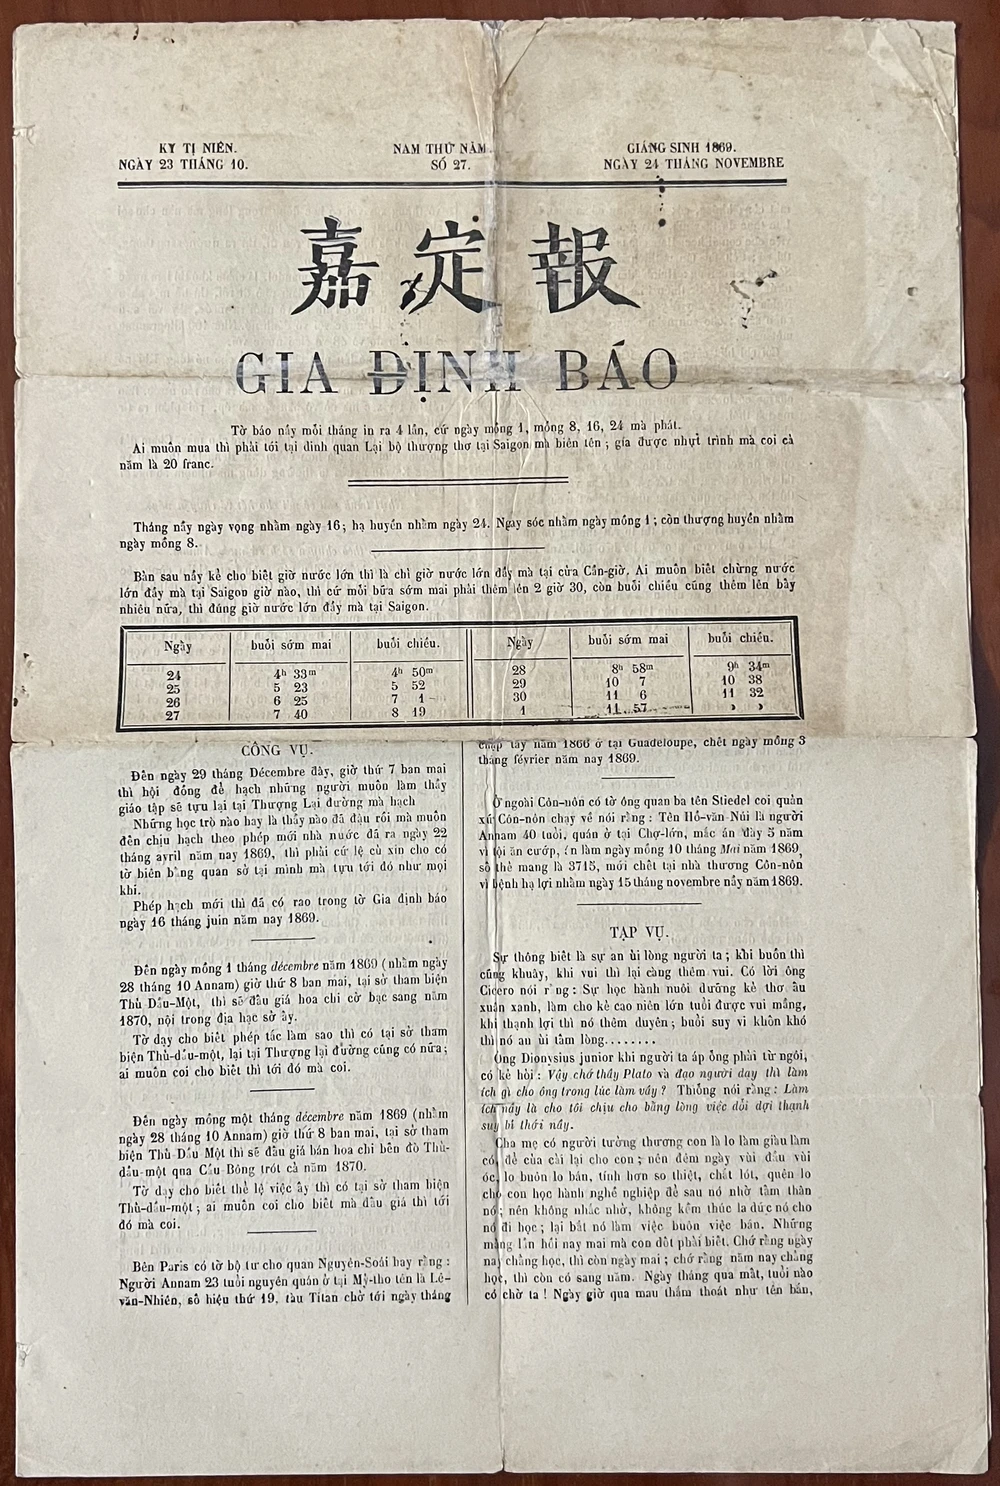 KỶ TỊ NIÊN.
NGÀY 23 THÁNG 10.
NAM THỨ NĂM.
SỐ 27.
GIÁNG SINH 1869.
NGÀY 24 THÁNG NOVEMBRE
嘉定報
GIA ĐỊNH BÁO
Tờ báo nầy mỗi tháng in ra 4 lần, cứ ngày mồng 1, mồng 8, 16, 24 mà phát.
Ai muốn mua thì phải tới tại dinh quan Lại bộ thượng thơ tại Saigon mà biên tên ; gía được nhựt trình mà coi cả
năm là 20 franc.
Tháng nầy ngày vọng nhằm ngày 16 ; hạ huyền nhằm ngày 24. Ngày sóc nhằm ngày mồng 1 ; còn thượng huyền nhằm
ngày mồng 8.
Bản sau nầy kể cho biết giờ nước lớn thì là chỉ giờ nước lớn đầy mà tại cửa Cần-giờ. Ai muốn biết chừng nước
lớn đầy mà tại Saigon giờ nào, thì cứ mỗi bữa sớm mai phải thêm lên 2 giờ 30, còn buổi chiều cũng thêm lên bấy
nhiêu nữa, thì đúng giờ nước lớn đầy mà tại Saigon.
Ngày buổi sớm mai buổi chiều. Ngày buổi sớm mai buổi chiều.
24 4h 33m 4h 50m 28 8h 58m 9h 34m
25 5 23 5 52 29 10 7 10 38
26 6 25 7 1 30 11 6 11 32
27 7 40 8 19 1 11 57 » »
CÔNG VỤ.
Đến ngày 29 tháng Décembre đây, giờ thứ 7 ban mai
thì hội đồng để hạch những người muốn làm thầy
giáo tập sẽ tựu lại tại Thượng Lại đường mà hạch
Những học trò nào hay là thầy nào đã đậu rồi mà muốn
đến chịu hạch theo phép mới nhà nước đã ra ngày 22
tháng avril năm nay 1869, thì phải cứ lệ cũ xin cho có
tờ biên bằng quan sở tại mình mà tựu tới đó như mọi
khi.
Phép hạch mới thì đã có rao trong tờ Gia định báo
ngày 16 tháng juin năm nay 1869.
Đến ngày mồng 1 tháng décembre năm 1869 (nhằm ngày
28 tháng 10 Annam) giờ thứ 8 ban mai, tại sở tham biện
Thủ Dầu-Một, thì sẽ đấu giá hoa chi cờ bạc sang năm
1870, nội trong địa hạc sở ấy.
Tờ dạy cho biết phép tắc làm sao thì có tại sở tham
biện Thủ-dầu-một, lại tại Thượng lại đường cũng có nữa ;
ai muốn coi cho biết thì tới đó mà coi.
Đến ngày mồng một tháng décembre năm 1869 (nhằm
ngày 28 tháng 10 Annam) giờ thứ 8 ban mai, tại sở tham
biện Thủ Dầu Một thì sẽ đấu giá bán hoa chi bến đò Thủ-
dầu-một qna Cầu Bông trót cả năm 1870.
Tờ dạy cho biết thể lệ việc ấy thì có tại sở tham biện
Thủ-dầu-một ; ai muốn coi cho biết mà đấu giá thì tới
đó mà coi.
Bên Paris có tờ bộ tư cho quan Nguyên-Soái hay rằng :
Người Annam 23 tuổi nguyên quán ở tại Mỹ-tho tên là Lê-
văn-Nhiên, số hiệu thứ 19, tàu Titan chở tới ngày tháng
chạp tây năm 1866 ở tại Guadeloupe, chết ngày mồng 3
tháng février năm nay 1869.
Ở ngoài Côn-nôn có tờ ông quan ba tên Stiedel coi quản
xứ Côn-nôn chạy về nói rằng : Tên Hồ-văn-Núi là người
Annam 40 tuổi, quán ở tại Chợ-lớn, mắc án đày 5 năm
vì tội ăn cướp, án làm ngày mồng 10 tháng Mai năm 1869,
số thẻ mang là 3715, mới chết tại nhà thương Côn-nôn
vì bệnh hạ lợi nhằm ngày 15 tháng novembre nầy năm 1869.
TẠP VỤ.
Sự thông biết là sự an ủi lòng người ta ; khi buồn thì
cũng khuây, khi vui thì lại càng thêm vui. Có lời ông
Cicéro nói rằng : Sự học hành nuôi dưỡng kẻ thơ ấu
xuân xanh, làm cho kẻ cao niên lớn tuổi được vui mầng,
khi thạnh lợi thì nó thêm duyên ; buổi suy vi khôn khó
thì nó an ủi tấm lòng........
Ông Dionysius junior khi người ta áp ổng phải từ ngôi,
có kẻ hỏi : Vậy chớ thầy Plato và đạo người dạy thì làm
ích gì cho ông trong lúc làm vầy ? Thì ổng nói rằng : Làm
ích nầy là cho tôi chịu cho bằng lòng việc đổi dợi thạnh
suy bĩ thới nầy.
Cha mẹ có người tưởng thương con là lo làm giàu làm
có, để của cải lại cho con ; nên đêm ngày vùi đầu vùi
óc, lo buôn lo bán, tính hơn so thiệt, chắt lót, quên lo
cho con học hành nghề nghiệp để sau nó nhờ tấm thân
nó ; nên không nhắc nhở, không kềm thúc la dức nó cho
nó đi học ; lại bắt nó làm việc buôn việc bán. Những
mảng lần hồi nay mai mà con dốt phải biết. Chớ rằng ngày
nay chẳng học, thì còn ngày mai ; chớ rằng năm nay chẳng
học, thì còn có sang năm. Ngày tháng qua mất, tuổi nào
có chờ ta ! Ngày giờ qua mau thấm thoát như tên bắn,